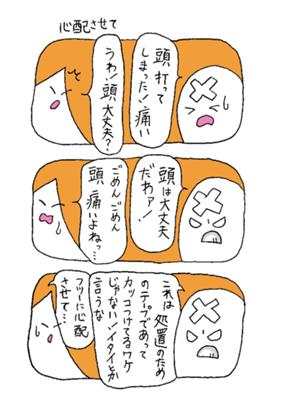 心配させて
頭 打って
しまった！痛い
うわ！頭 大丈夫？
頭は大丈夫
だわァ！
ごめんごめん
頭 痛いよね…
これは 処置のため
のテープであって
カッコつけてるワケ
じゃない！イタイとか
言うな
フツーに心配
させて…